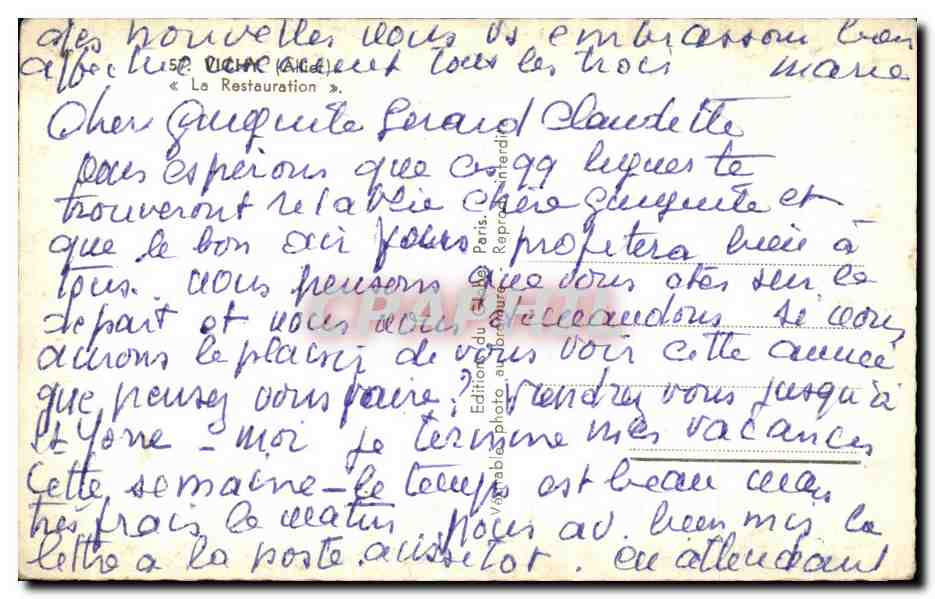 des nouvelles nous vs embrassons bien
affectueusement tous les trois Marie
57. VICHY (Allier).
« La Restauration ».
Chers Guiguite Gerard Claudette
nous espérons que ces qq lignes te
trouveront rétablie chère Guiguite et
que le bon air fera profitera bien à
tous. nous pensons que vous êtes sur le
depart et nous nous demandons si nous
aurons le plaisir de vous voir cette année
que pensez vous faire? Viendrez vous jusqu'à
St Yorre - moi je termine mes vacances
cette semaine - le temps est beau mais
très frais le matin nous av. bien mis la
lettre a la poste aussitot. en attendant
Editions du Gl Paris.
Véritable photo au bromure - Reprod. interdite
CPAPHIL